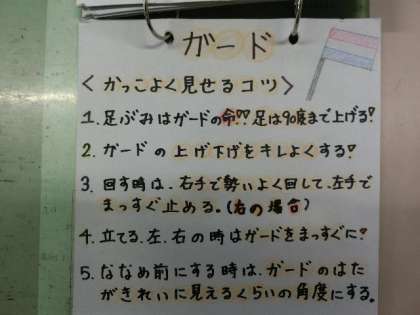 ガード
＜かっこよく見せるコツ＞
1.足ぶみはガードの命!!足は90度まで上げる!
2.ガードの上げ下げをキレよくする!
3.回す時は、右手で勢いよく回して、左手で
まっすぐ止める。(右の場合)
4.立てる、左、右の時はガードをまっすぐに!
5.ななめ前にする時は、ガードのはた
がきれいに見えるくらいの角度にする。